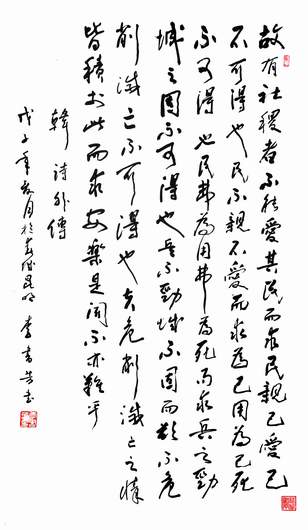 故有社稷者不能愛其民而求民親己愛己
不可得也民不親不愛而求為己用為己死
不可得也民弗為用弗為死而求兵之勁
城之固不可得也兵不勁城不固而欲不危
削滅亡不可得也夫危削滅亡之情
皆積於此而求安樂是聞不亦難乎
韓詩外傳
戊子年夏月於春城昆明李書